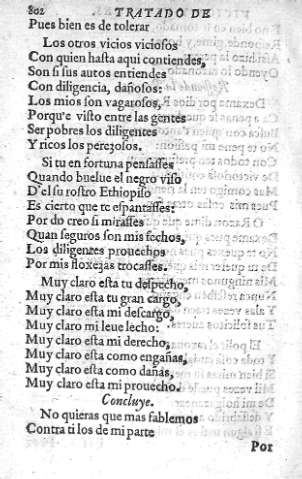 802 TRATADO DE
Pues bien es de tolerar
Los otros vicios viciosos
Con quien hasta aqui contiendes,
Son si sus autos entiendes
Con diligencia, dañosos:
Los mios son vagarosos,
Porqu'e visto entre las gentes
Ser pobres los diligentes
Y ricos los pereçosos.
Si tu en fortuna pensasses
Quando buelue el negro viso
D'el su rostro Ethiopiso
Es cierto que te espantasses:
Por do creo si mirasses
Quan seguros son mis fechos,
Los diligentes prouechos
Por mis floxejas trocasses.
Muy claro esta tu despecho,
Muy claro esta tu gran cargo,
Muy claro esta mi descargo,
Muy claro mi leue lecho:
Muy claro esta mi derecho,
Muy claro esta como engañas,
Muy claro esta como dañas,
Muy claro esta mi prouecho.
Concluye.
No quieras que mas fablemos
Contra ti los de mi parte
Por